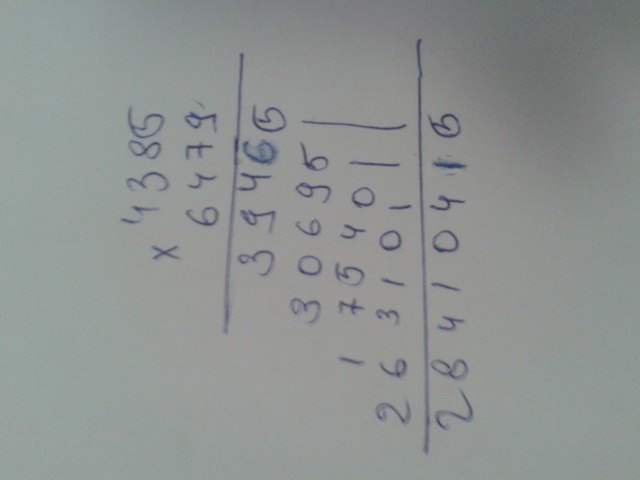 4385
× 6479
39465
30695|
17540||
26310|||
28410415